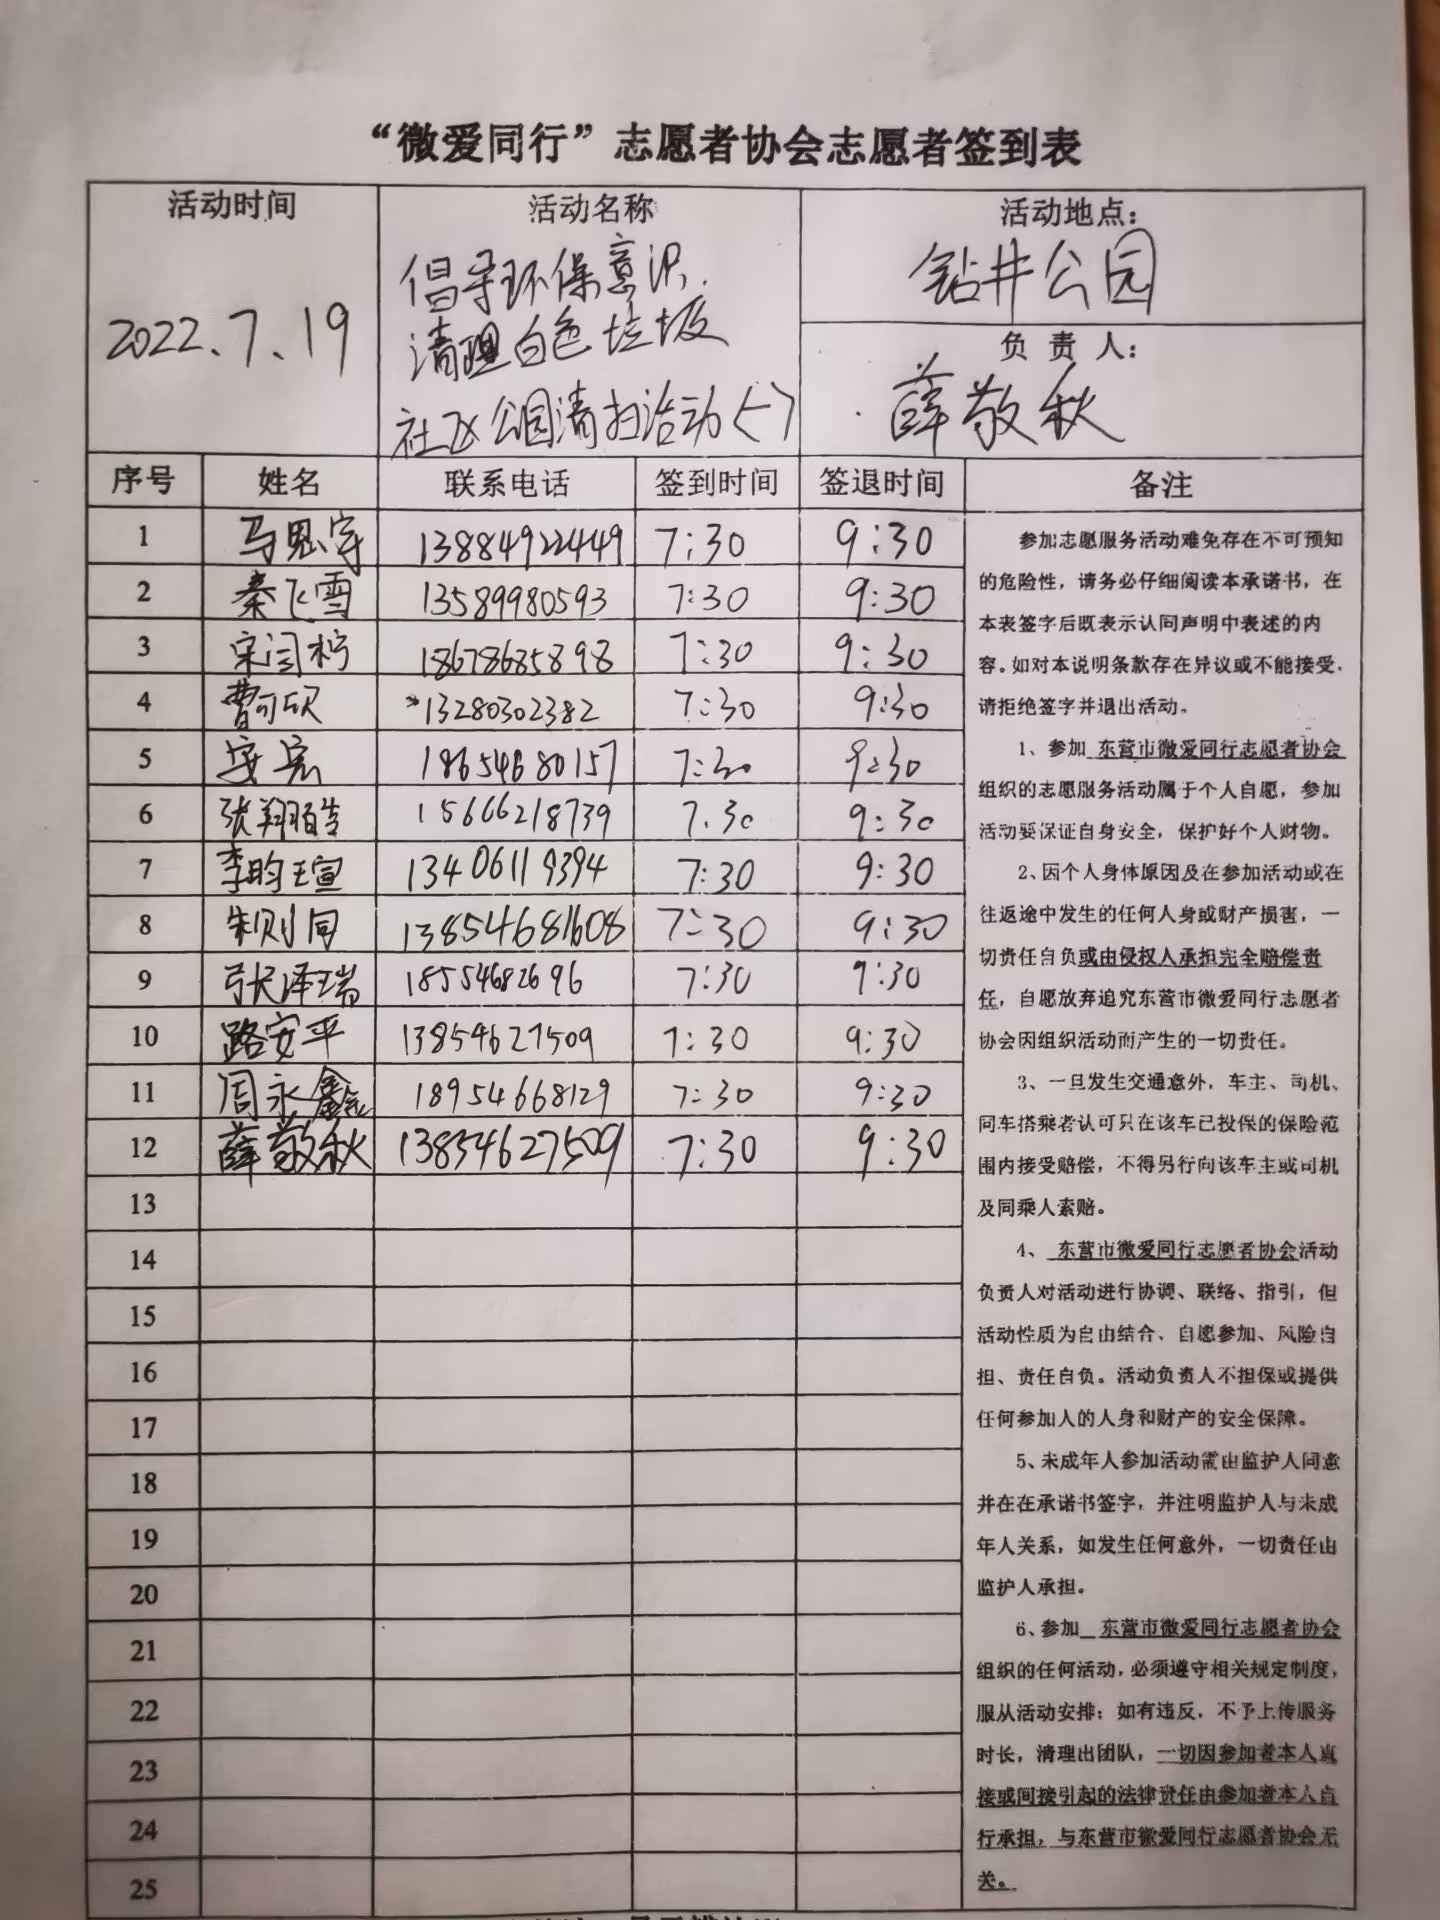 “微爱同行”志愿者协会志愿者签到表
活动时间
2022.7.19
活动名称
倡导环保意识.
清理白色垃圾
社区公园清扫活动(一)
活动地点：
钻井公园
负 责 人：
薛敬秋
序号 姓名 联系电话 签到时间 签退时间 备注
1 马思宇 13884922449 7:30 9:30
2 秦飞雪 13589980593 7:30 9:30
3 宋闫柠 18678685898 7:30 9:30
4 曹可欣 13280302382 7:30 9:30
5 安宏 18654680157 7:30 9:30
6 张翔 15666218739 7.30 9:30
7 李昀瑄 13406119394 7:30 9:30
8 朱则同 13854681608 7:30 9:30
9 张泽瑞 18554682696 7:30 9:30
10 路安平 13854627509 7:30 9:30
11 周永鑫 18954668129 7:30 9:30
12 薛敬秋 13854627509 7:30 9:30
13
14
15
16
17
18
19
20
21
22
23
24
25
参加志愿服务活动难免存在不可预知
的危险性，请务必仔细阅读本承诺书，在
本表签字后既表示认同声明中表述的内
容。如对本说明条款存在异议或不能接受，
请拒绝签字并退出活动。
1、参加 东营市微爱同行志愿者协会
组织的志愿服务活动属于个人自愿，参加
活动要保证自身安全，保护好个人财物。
2、因个人身体原因及在参加活动或在
往返途中发生的任何人身或财产损害，一
切责任自负或由侵权人承担完全赔偿责
任，自愿放弃追究东营市微爱同行志愿者
协会因组织活动而产生的一切责任。
3、一旦发生交通意外，车主、司机、
同车搭乘者认可只在该车已投保的保险范
围内接受赔偿，不得另行向该车主或司机
及同乘人索赔。
4、 东营市微爱同行志愿者协会活动
负责人对活动进行协调、联络、指引，但
活动性质为自由结合、自愿参加、风险自
担、责任自负。活动负责人不担保或提供
任何参加人的人身和财产的安全保障。
5、未成年人参加活动需由监护人同意
并在在承诺书签字，并注明监护人与未成
年人关系，如发生任何意外，一切责任由
监护人承担。
6、参加 东营市微爱同行志愿者协会
组织的任何活动，必须遵守相关规定制度，
服从活动安排；如有违反，不予上传服务
时长，清理出团队，一切因参加者本人直
接或间接引起的法律责任由参加者本人自
行承担，与东营市微爱同行志愿者协会无
关。